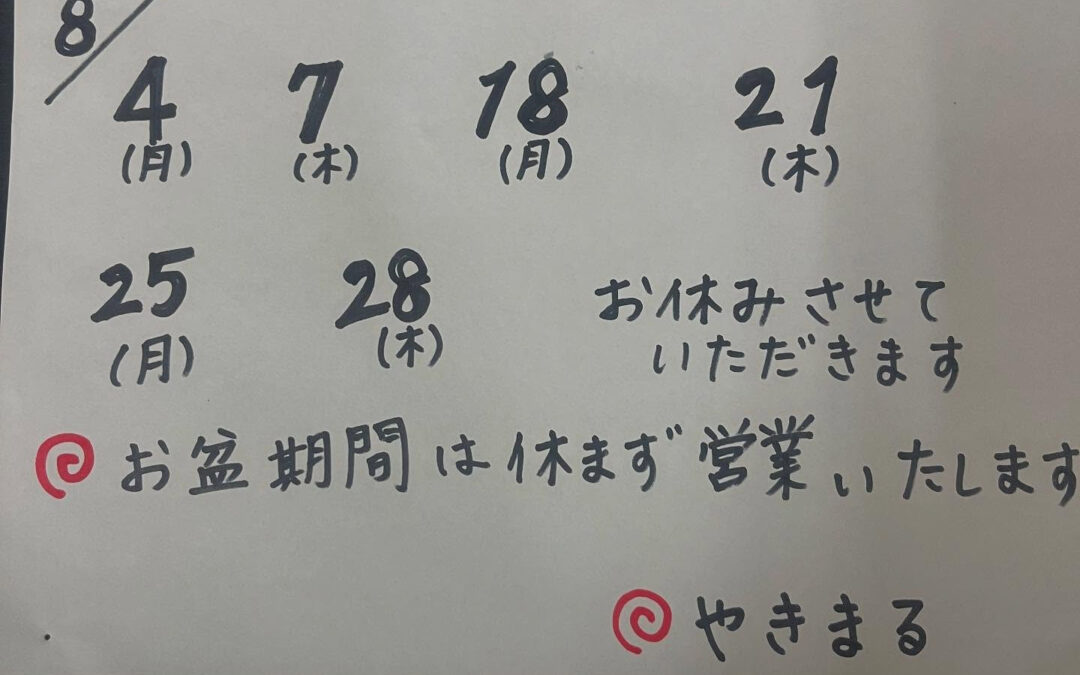 8/
4 7 18 21
(月) (木) (月) (木)
25 28
(月) (木)
お休みさせて
いただきます
お盆期間は休まず営業いたします
やきまる